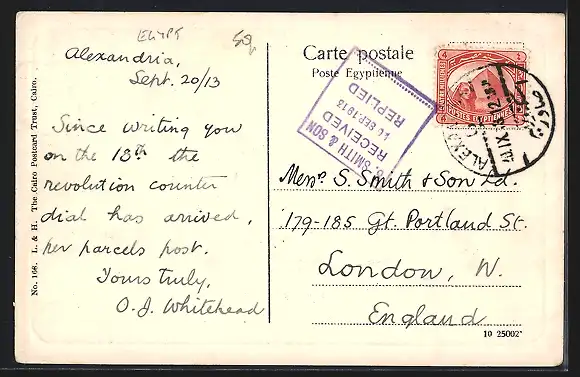 EGYPT
Alexandria,
Sept. 20/13
Since writing you
on the 13th the
revolution counter
dial has arrived,
per parcels post.
Yours truly,
O. J. Whitehead
No. 168. L. & H. The Cairo Postcard Trust, Cairo.
Carte postale
Poste Egyptienne
SMITH & SON
RECEIVED
SEP 1913
REPLIED
POSTES EGYPTIENNES
4
4
ALEX
Messrs. S. Smith & Son Ld.
179-185 Gt. Portland St.
London, W.
England
10 25002*